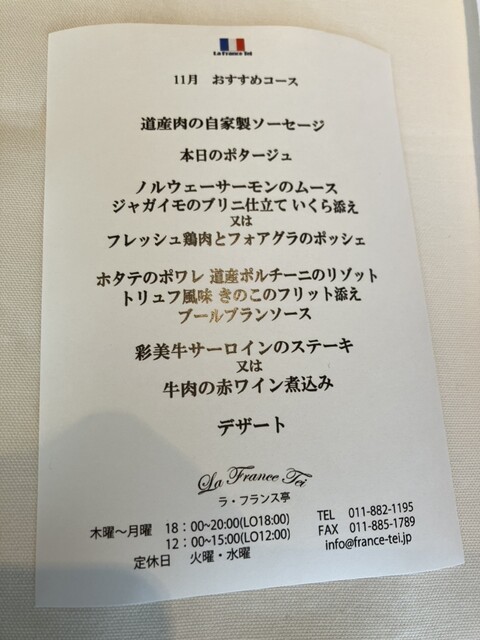 La France Tei
11月 おすすめコース
道産肉の自家製ソーセージ
本日のポタージュ
ノルウェーサーモンのムース
ジャガイモのブリニ仕立て いくら添え
又は
フレッシュ鶏肉とフォアグラのポッシェ
ホタテのポワレ 道産ポルチーニのリゾット
トリュフ風味 きのこのフリット添え
ブールブランソース
彩美牛サーロインのステーキ
又は
牛肉の赤ワイン煮込み
デザート
La France Tei
ラ・フランス亭
木曜～月曜 18：00~20:00(LO18:00)
12：00~15:00(LO12:00)
定休日 火曜・水曜
TEL 011-882-1195
FAX 011-885-1789
info@france-tei.jp